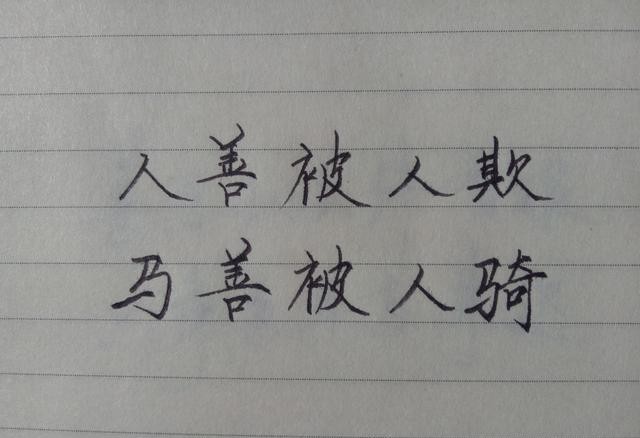 人善被人欺
马善被人骑